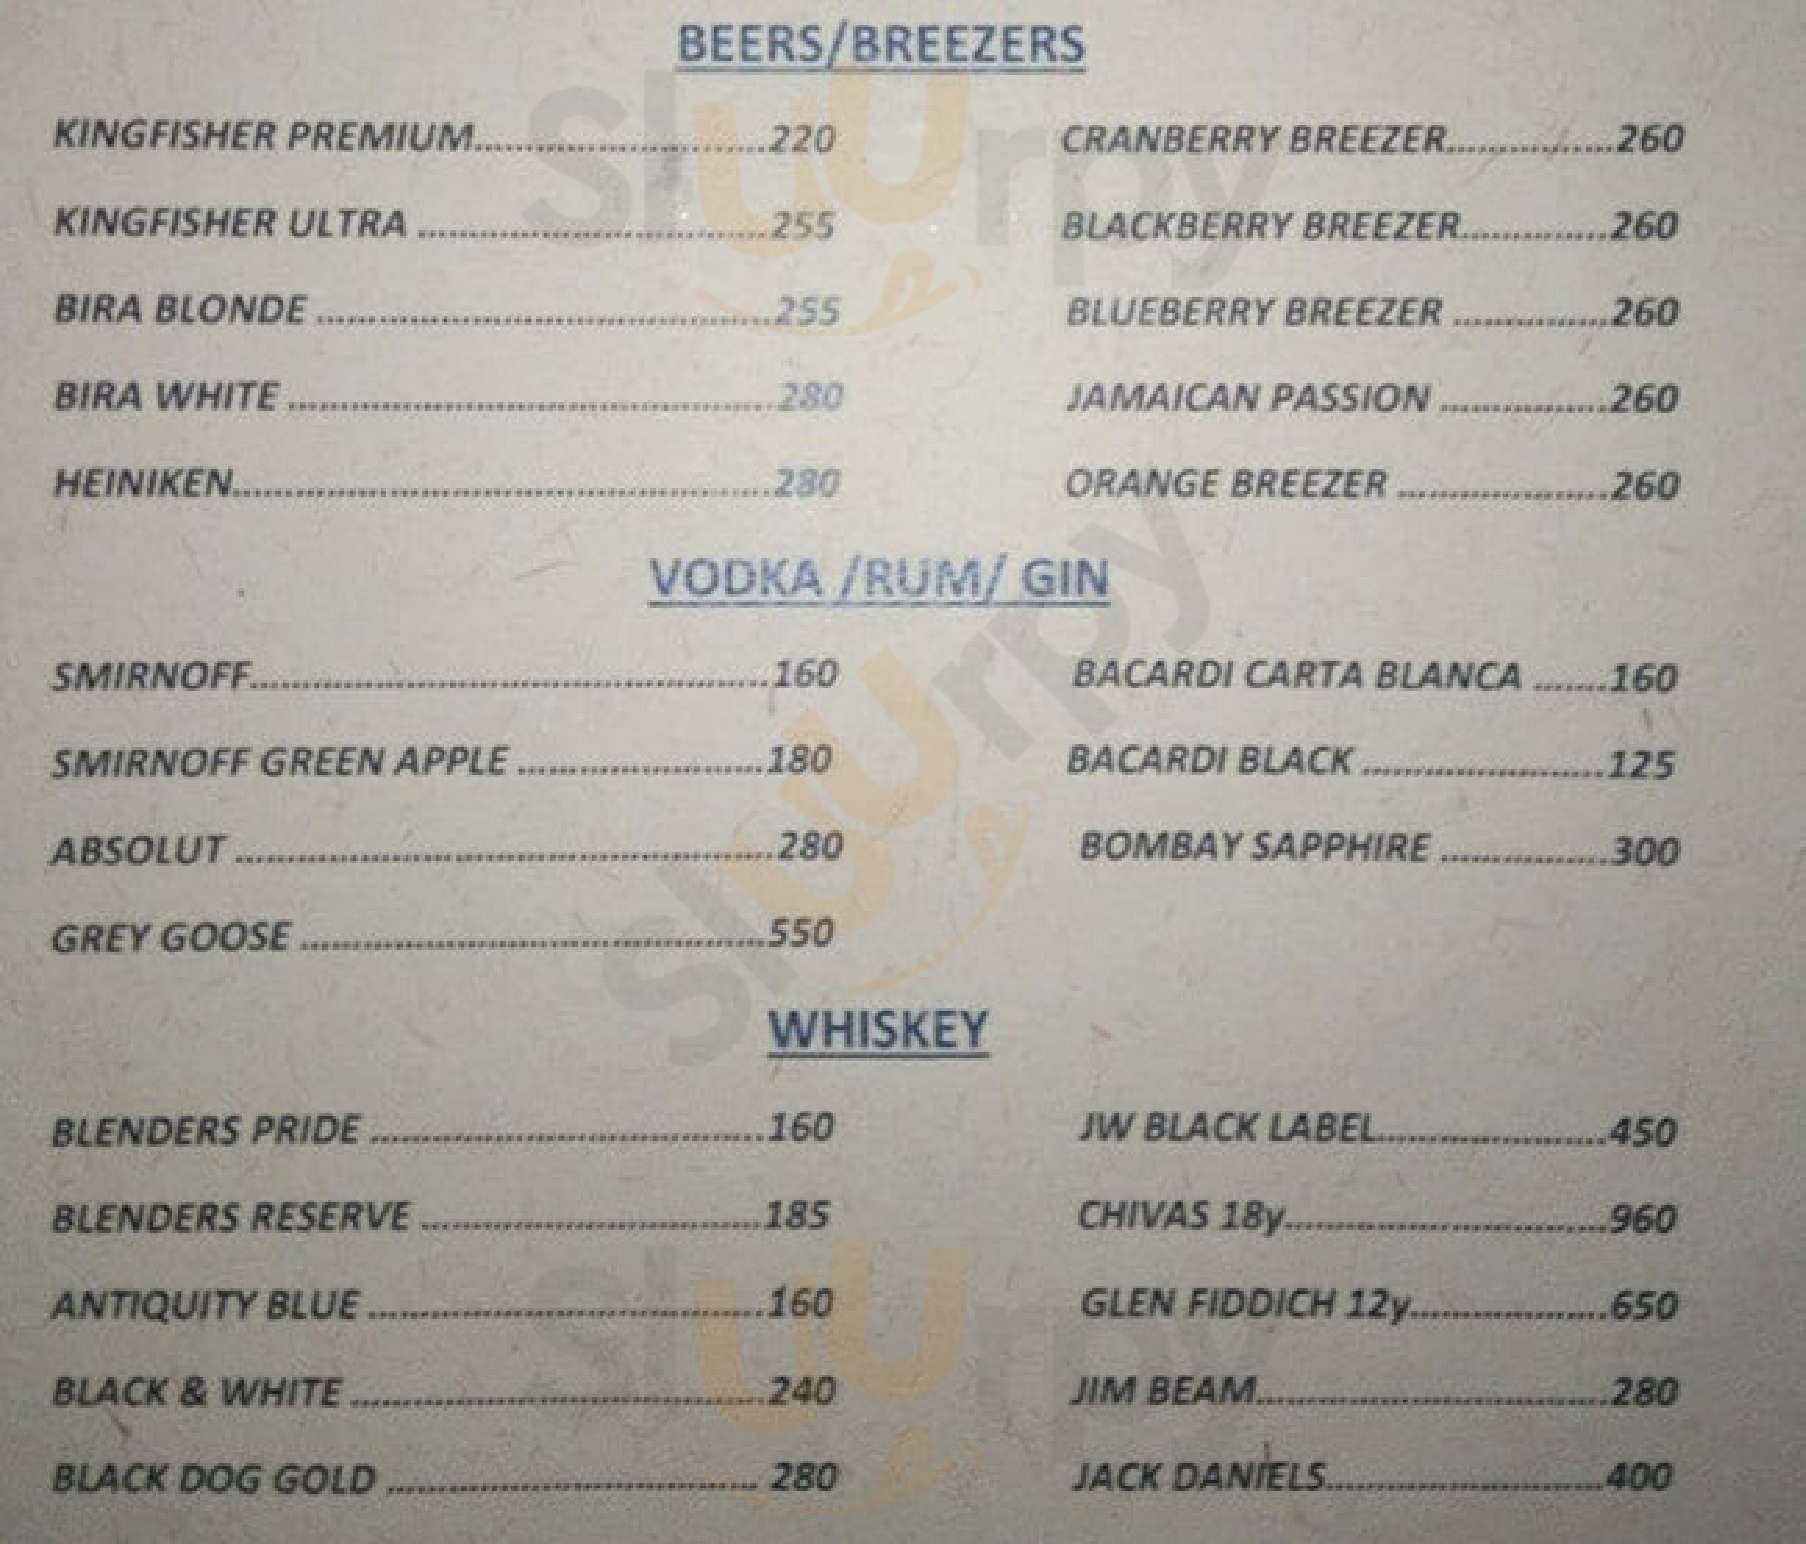 BEERS/BREEZERS
KINGFISHER PREMIUM.............................220
KINGFISHER ULTRA ..................................255
BIRA BLONDE ............................................255
BIRA WHITE ...............................................280
HEINIKEN....................................................280
CRANBERRY BREEZER................260
BLACKBERRY BREEZER..............260
BLUEBERRY BREEZER ...............260
JAMAICAN PASSION ................260
ORANGE BREEZER ....................260
VODKA /RUM/ GIN
SMIRNOFF..................................................160
SMIRNOFF GREEN APPLE ........................180
ABSOLUT ....................................................280
GREY GOOSE .............................................550
BACARDI CARTA BLANCA .......160
BACARDI BLACK .......................125
BOMBAY SAPPHIRE ................300
WHISKEY
BLENDERS PRIDE ......................................160
BLENDERS RESERVE .................................185
ANTIQUITY BLUE ......................................160
BLACK & WHITE ........................................240
BLACK DOG GOLD .................................... 280
JW BLACK LABEL......................450
CHIVAS 18y...............................960
GLEN FIDDICH 12y...................650
JIM BEAM..................................280
JACK DANIELS...........................400
Sluurpy
Sluurpy
Sluurpy